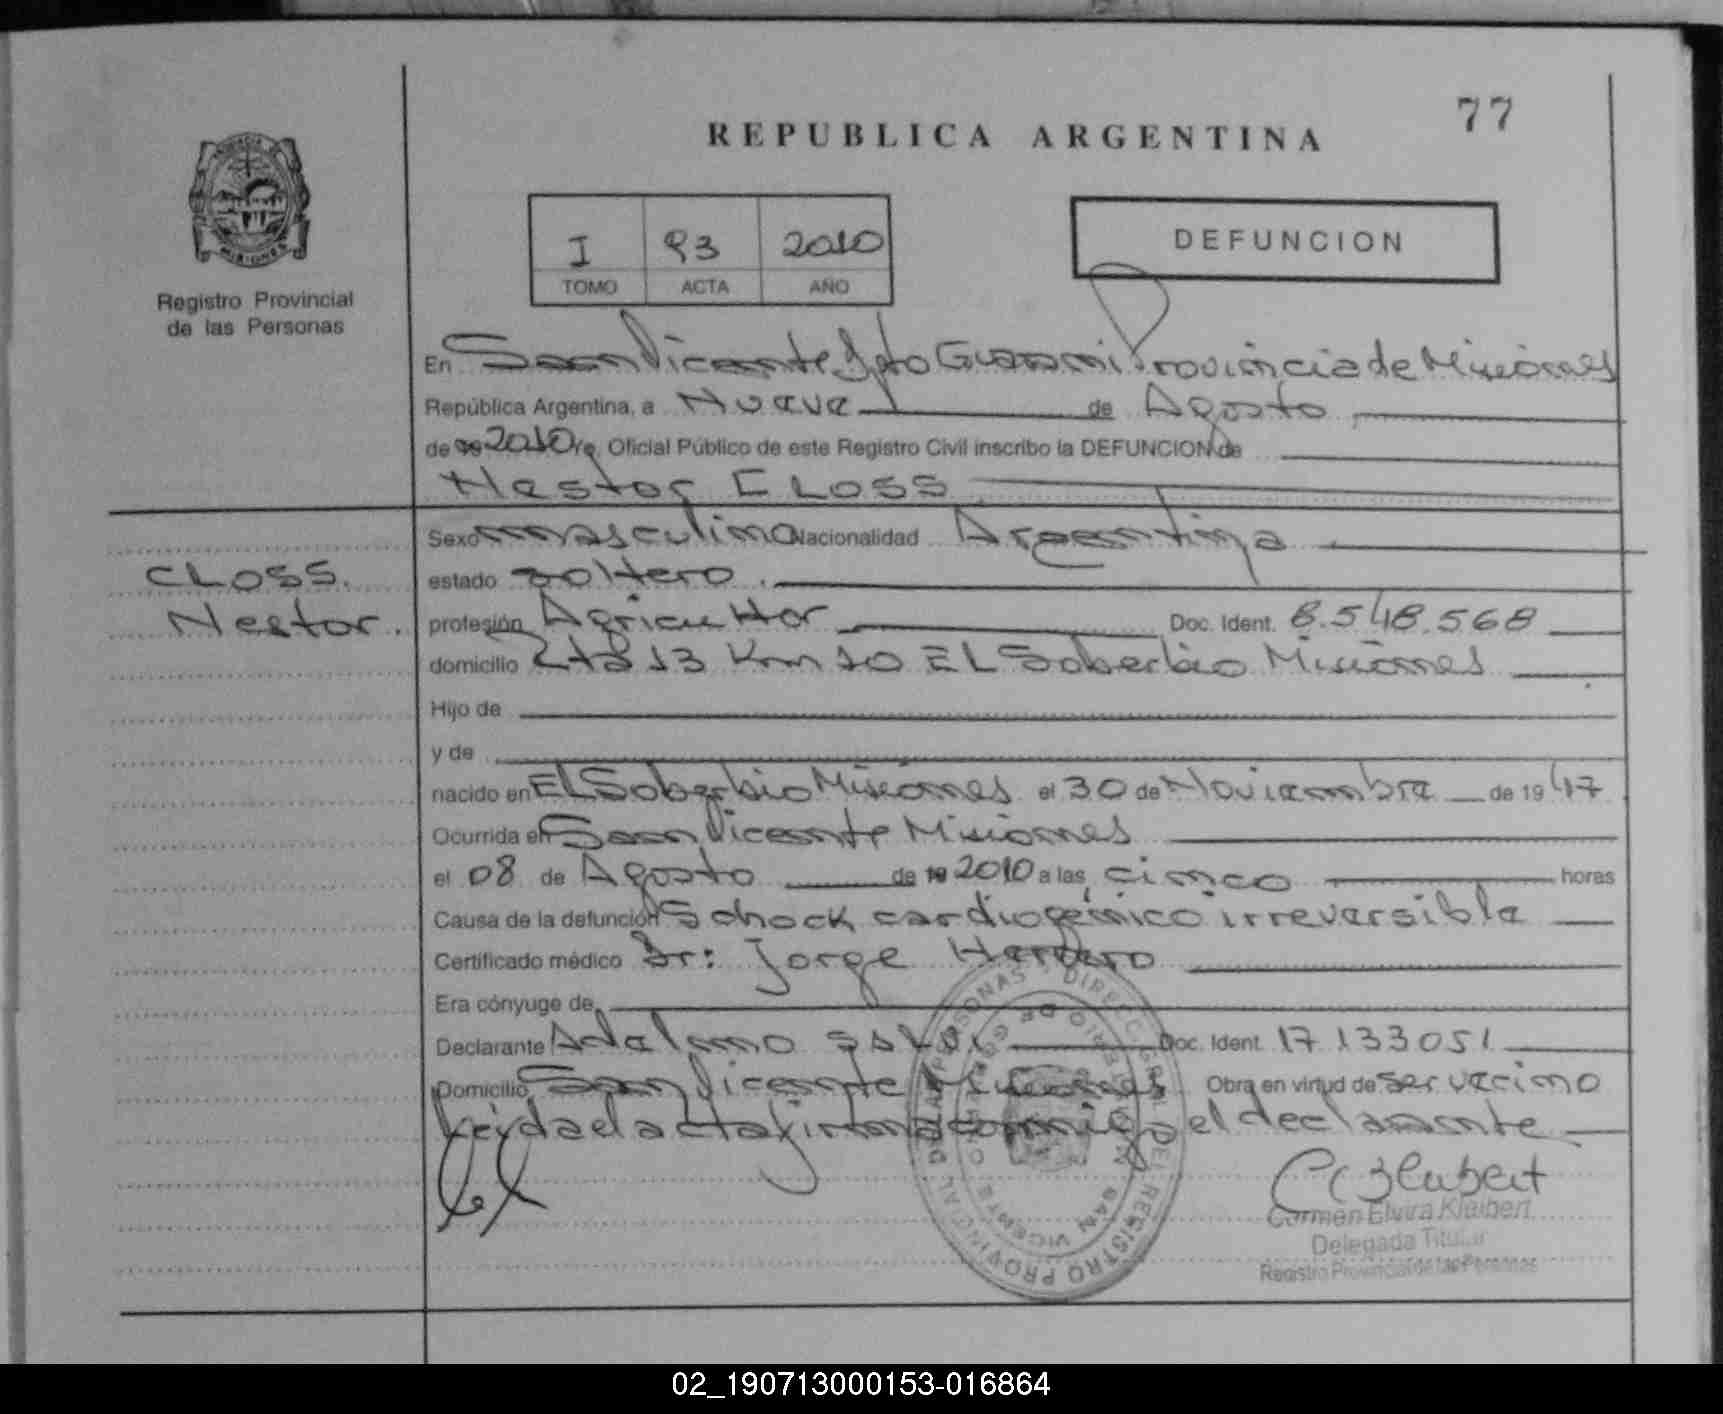 77
REPUBLICA ARGENTINA
I 93 2010
TOMO ACTA AÑO
DEFUNCION
Registro Provincial
de las Personas
En San Vicente Dpto Guarani Provincia de Misiones
República Argentina, a Nueve de Agosto
de 19 2010 yo, Oficial Público de este Registro Civil inscribo la DEFUNCION de
Nestor CLOSS
CLOSS.
Nestor.
Sexo masculino Nacionalidad Argentina
estado soltero.
profesión Agricultor Doc. Ident. 8.548.568
domicilio Lte 13 Km 10 EL Soberbio Misiones
Hijo de
y de
nacido en EL Soberbio Misiones el 30 de Noviembre de 1947
Ocurrida en San Vicente Misiones
el 08 de Agosto de 19 2010 a las cinco horas
Causa de la defunción Schock cardiogénico irreversible
Certificado médico Dr: Jorge
Era cónyuge de
Declarante Doc. Ident. 17.133051
Domicilio San Vicente Misiones Obra en virtud de ser vecino
Leida el acta firma conmigo el declarante
Carmen Elvira Kleibert
Delegada Titular
Registro Provincial de las Personas
02_190713000153-016864